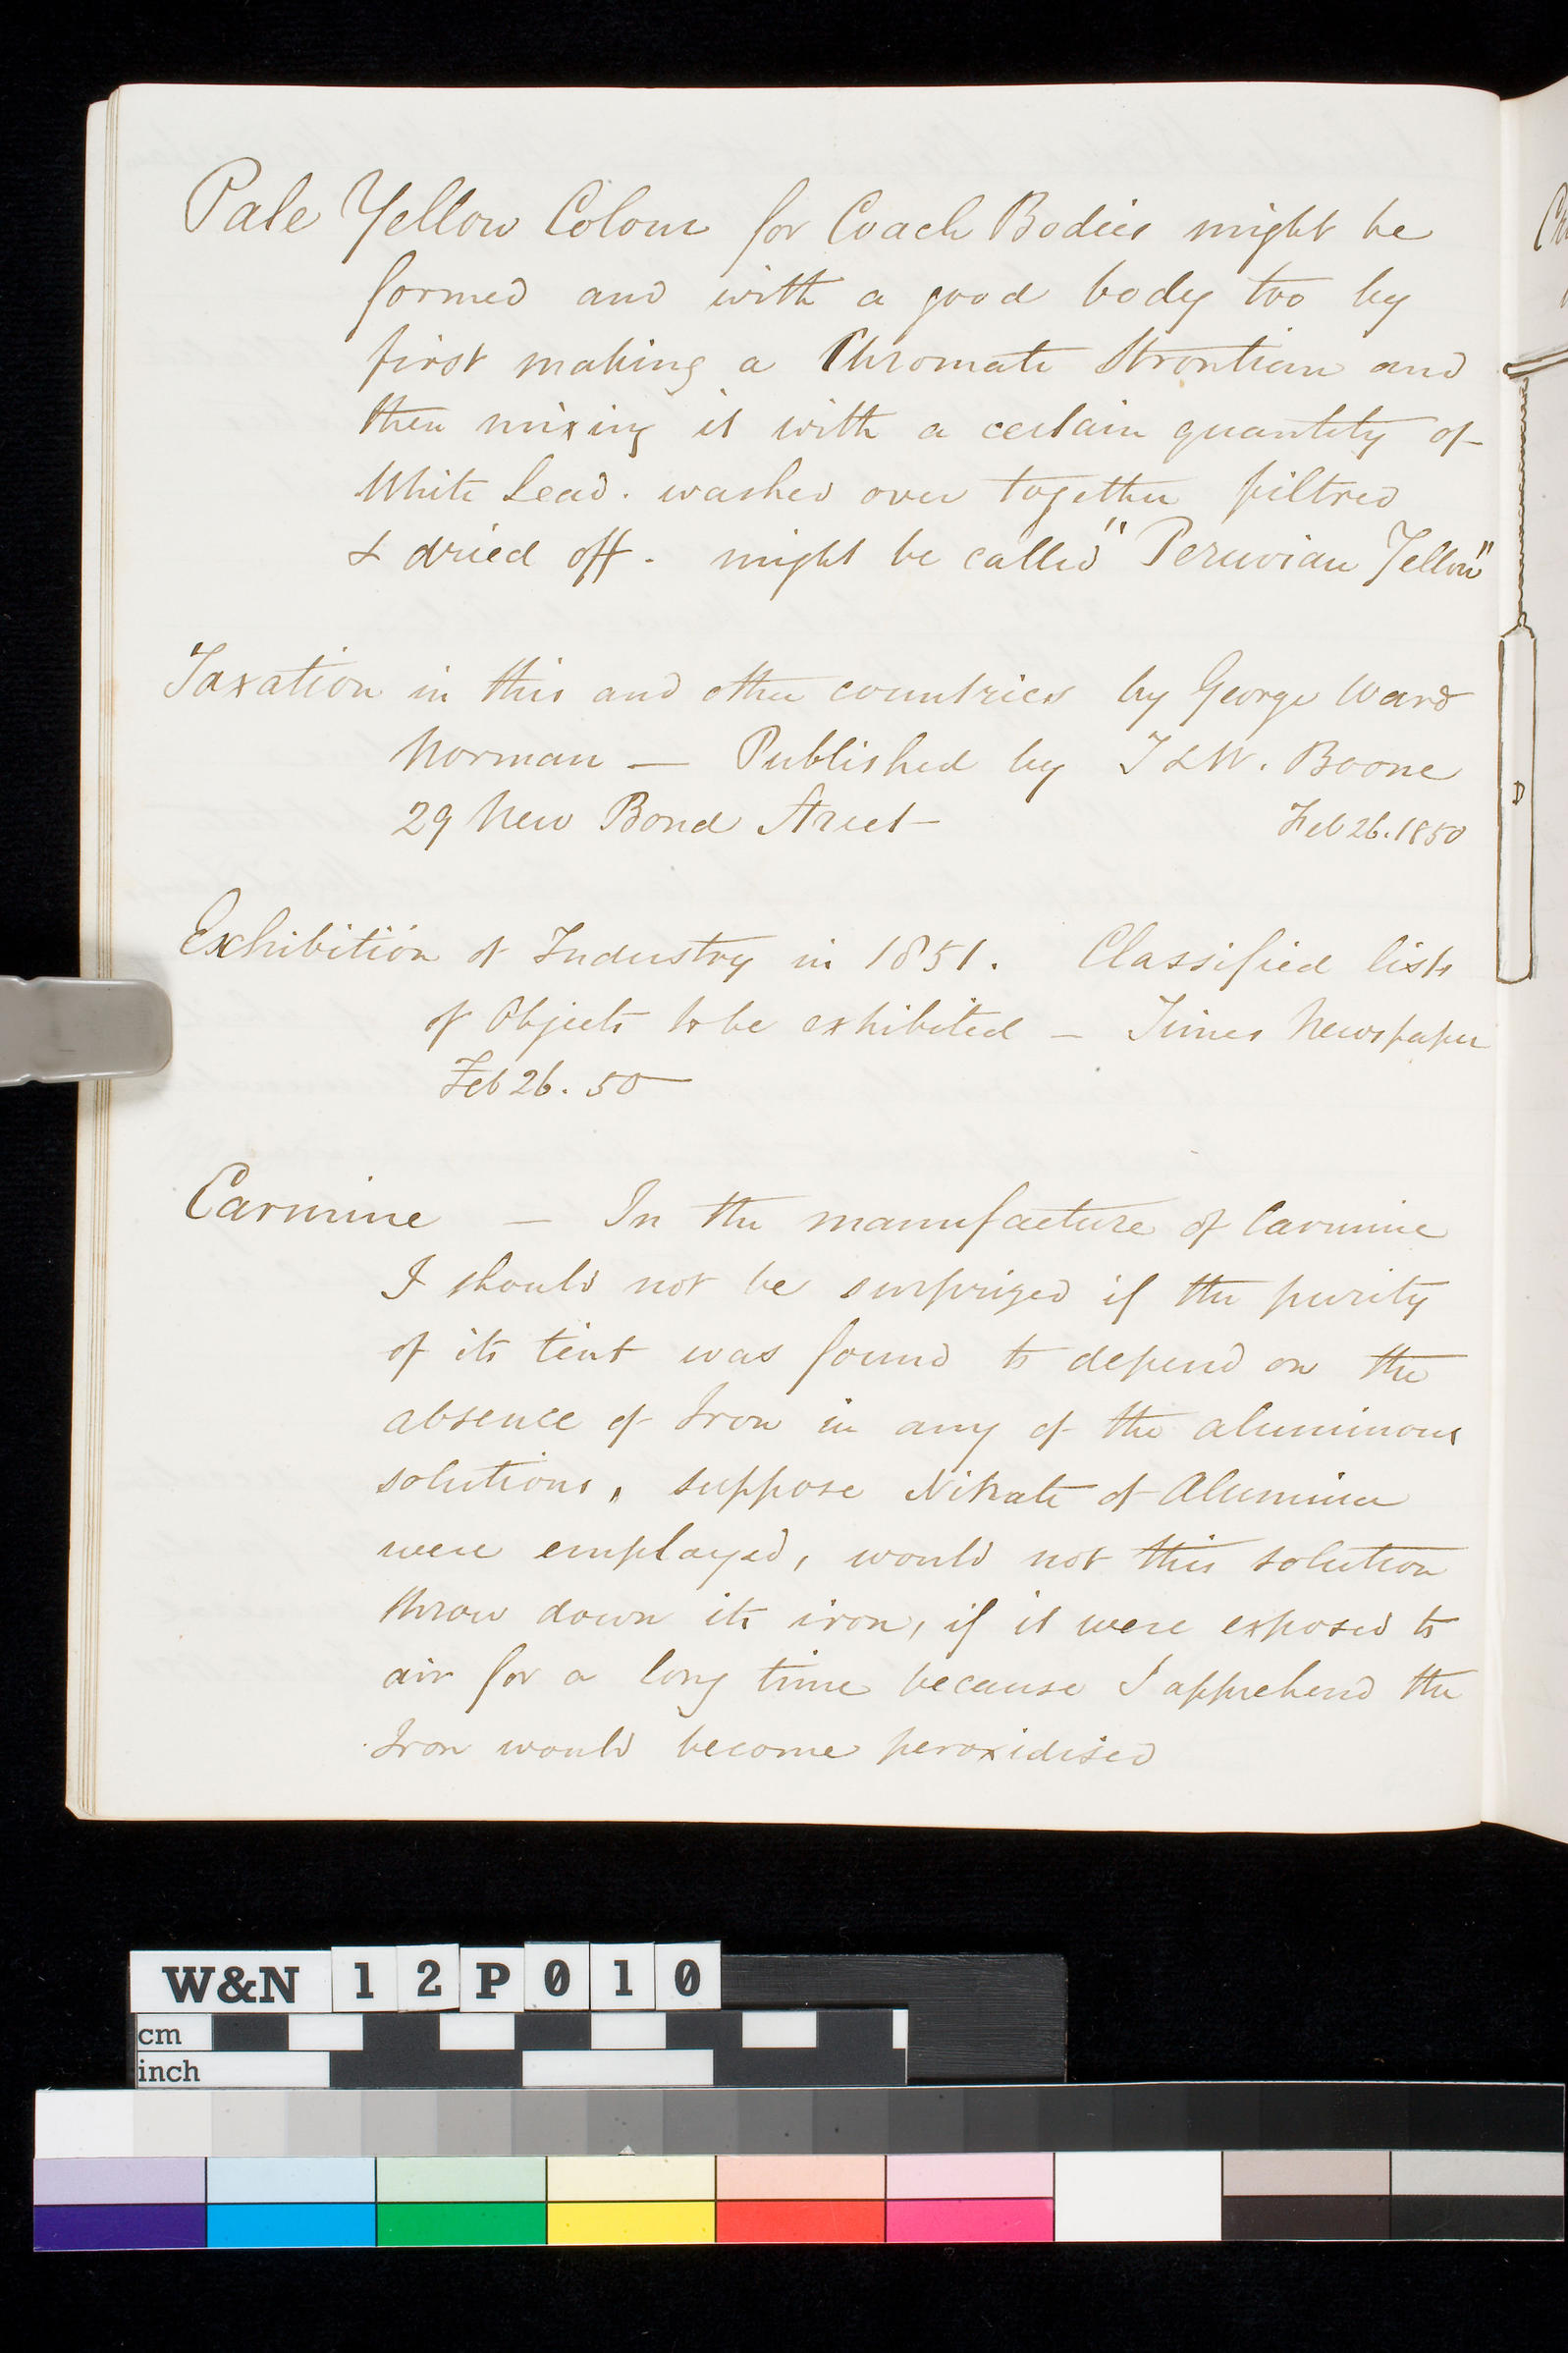 Pale Yellow Colour for Coach Bodies might be
formed and with a good body too by
first making a Chromate Strontian and
then mixing it with a certain quantity of
White Lead. washed over together filtred
& dried off. might be called "Peruvian Yellow"
Taxation in this and other countries by George Ward
Norman — Published by T & W. Boone
29 New Bond Street — Feb 26. 1850
Exhibition of Industry in 1851. Classified lists
of Objects to be exhibited — Times Newspaper
Feb 26. 50 —
Carmine — In the manufacture of Carmine
I should not be surprized if the purity
of its tint was found to depend on the
absence of Iron in any of the aluminous
solutions, suppose Nitrate of Alumina
were employed, would not this solution
throw down its iron, if it were exposed to
air for a long time because I apprehend the
Iron would become peroxidised
W&N 12P010
cm
inch